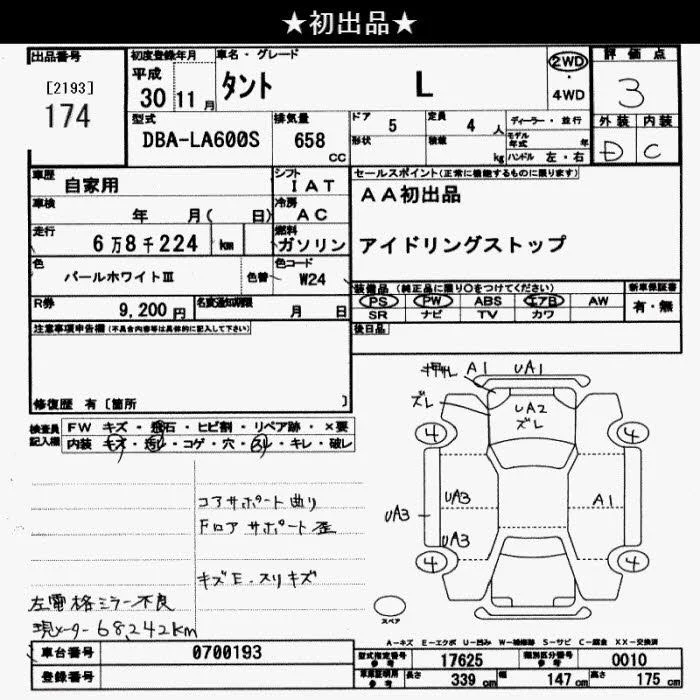 ★初出品★
出品番号
[2193]
174
初度登録年月
平成
30 11月
車名・グレード
タント L
2WD
・
4WD
評価点
3
外装 内装
D C
型式
DBA-LA600S
排気量
658
CC
ドア
5
定員
4 人
形状
積載
kg
ディーラー・並行
モデル年式 年
ハンドル 左・右
車歴
自家用
シフト
IAT
車検
年 月( 日)
冷房
AC
走行
6万8千224 km
燃料
ガソリン
色
パールホワイトⅢ
色替
色コード
W24
R券
9,200円
名変通知期限
月 日
セールスポイント(正常に機能するものに限ります)
AA初出品
アイドリングストップ
装備品 (純正品に限り○をつけてください)
新車保証書
PS PW ABS エアB AW
SR ナビ TV カワ
有・無
後日品
注意事項申告欄(不具合内容等は具体的に記入して下さい)
修復歴 有〔箇所 〕
検査員記入欄
FW キズ・飛石・ヒビ割・リペア跡・×要
内装 キズ・汚レ・コゲ・穴・スレ・キレ・破レ
コアサポート曲り
Fロア サポート歪
キズE・スリキズ
左電格ミラー不良
現メーター68,242km
押し A1 UA1
ズレ
UA2
ズレ
4 4
UA3
UA3
UA3
A1
4 4
スペア
A-キズ E-エクボ U-凹み W-補修跡 S-サビ C-腐食 XX-交換済
車台番号
0700193
登録番号
型式指定番号
参考
17625
類別区分番号
参考
0010
車庫証明用
参考
長さ 339 cm 幅 147 cm 高さ 175 cm